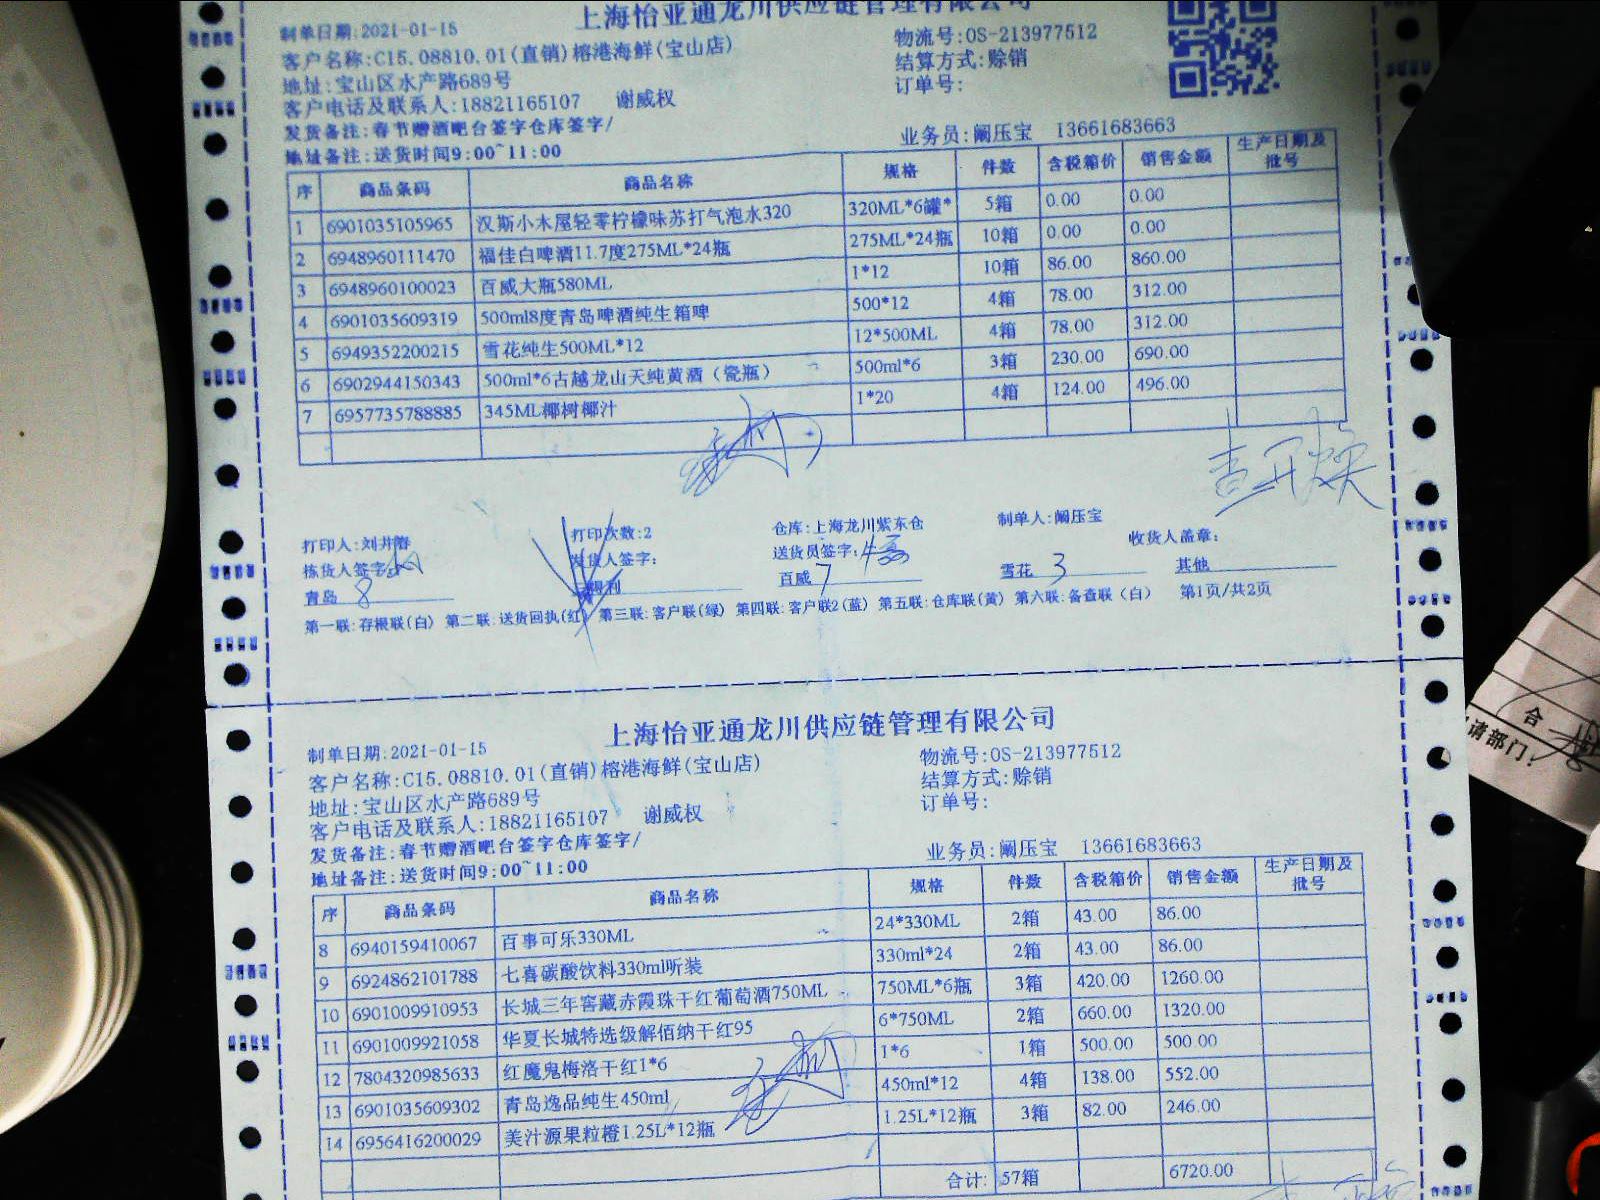 上海怡亚通龙川供应链管理有限公司
制单日期:2021-01-15
客户名称:C15.08810.01(直销)榕港海鲜(宝山店) 物流号:OS-213977512
地址:宝山区水产路689号 结算方式:赊销
客户电话及联系人:18821165107 谢威权 订单号:
发货备注:春节赠酒吧台签字仓库签字/
地址备注:送货时间9:00~11:00 业务员:阚压宝 13661683663
序 商品条码 商品名称 规格 件数 含税箱价 销售金额 生产日期及批号
1 6901035105965 汉斯小木屋轻零柠檬味苏打气泡水320 320ML*6罐* 5箱 0.00 0.00
2 6948960111470 福佳白啤酒11.7度275ML*24瓶 275ML*24瓶 10箱 0.00 0.00
3 6948960100023 百威大瓶580ML 1*12 10箱 86.00 860.00
4 6901035609319 500ml8度青岛啤酒纯生箱啤 500*12 4箱 78.00 312.00
5 6949352200215 雪花纯生500ML*12 12*500ML 4箱 78.00 312.00
6 6902944150343 500ml*6古越龙山天纯黄酒（瓷瓶） 500ml*6 3箱 230.00 690.00
7 6957735788885 345ML椰树椰汁 1*20 4箱 124.00 496.00
打印人:刘井春 打印次数:2 仓库:上海龙川紫东仓 制单人:阚压宝
拣货人签字: 发货人签字: 送货员签字: 收货人盖章:
青岛 8 百威 7 雪花 3 其他
第一联:存根联(白) 第二联:送货回执(红) 第三联:客户联(绿) 第四联:客户联2(蓝) 第五联:仓库联(黄) 第六联:备查联（白） 第1页/共2页
上海怡亚通龙川供应链管理有限公司
制单日期:2021-01-15 物流号:OS-213977512
客户名称:C15.08810.01(直销)榕港海鲜(宝山店) 结算方式:赊销
地址:宝山区水产路689号 订单号:
客户电话及联系人:18821165107 谢威权
发货备注:春节赠酒吧台签字仓库签字/
地址备注:送货时间9:00~11:00 业务员:阚压宝 13661683663
序 商品条码 商品名称 规格 件数 含税箱价 销售金额 生产日期及批号
8 6940159410067 百事可乐330ML 24*330ML 2箱 43.00 86.00
9 6924862101788 七喜碳酸饮料330ml听装 330ml*24 2箱 43.00 86.00
10 6901009910953 长城三年窖藏赤霞珠干红葡萄酒750ML 750ML*6瓶 3箱 420.00 1260.00
11 6901009921058 华夏长城特选级解佰纳干红95 6*750ML 2箱 660.00 1320.00
12 7804320985633 红魔鬼梅洛干红1*6 1*6 1箱 500.00 500.00
13 6901035609302 青岛逸品纯生450ml 450ml*12 4箱 138.00 552.00
14 6956416200029 美汁源果粒橙1.25L*12瓶 1.25L*12瓶 3箱 82.00 246.00
合计: 57箱 6720.00
合
请部门: